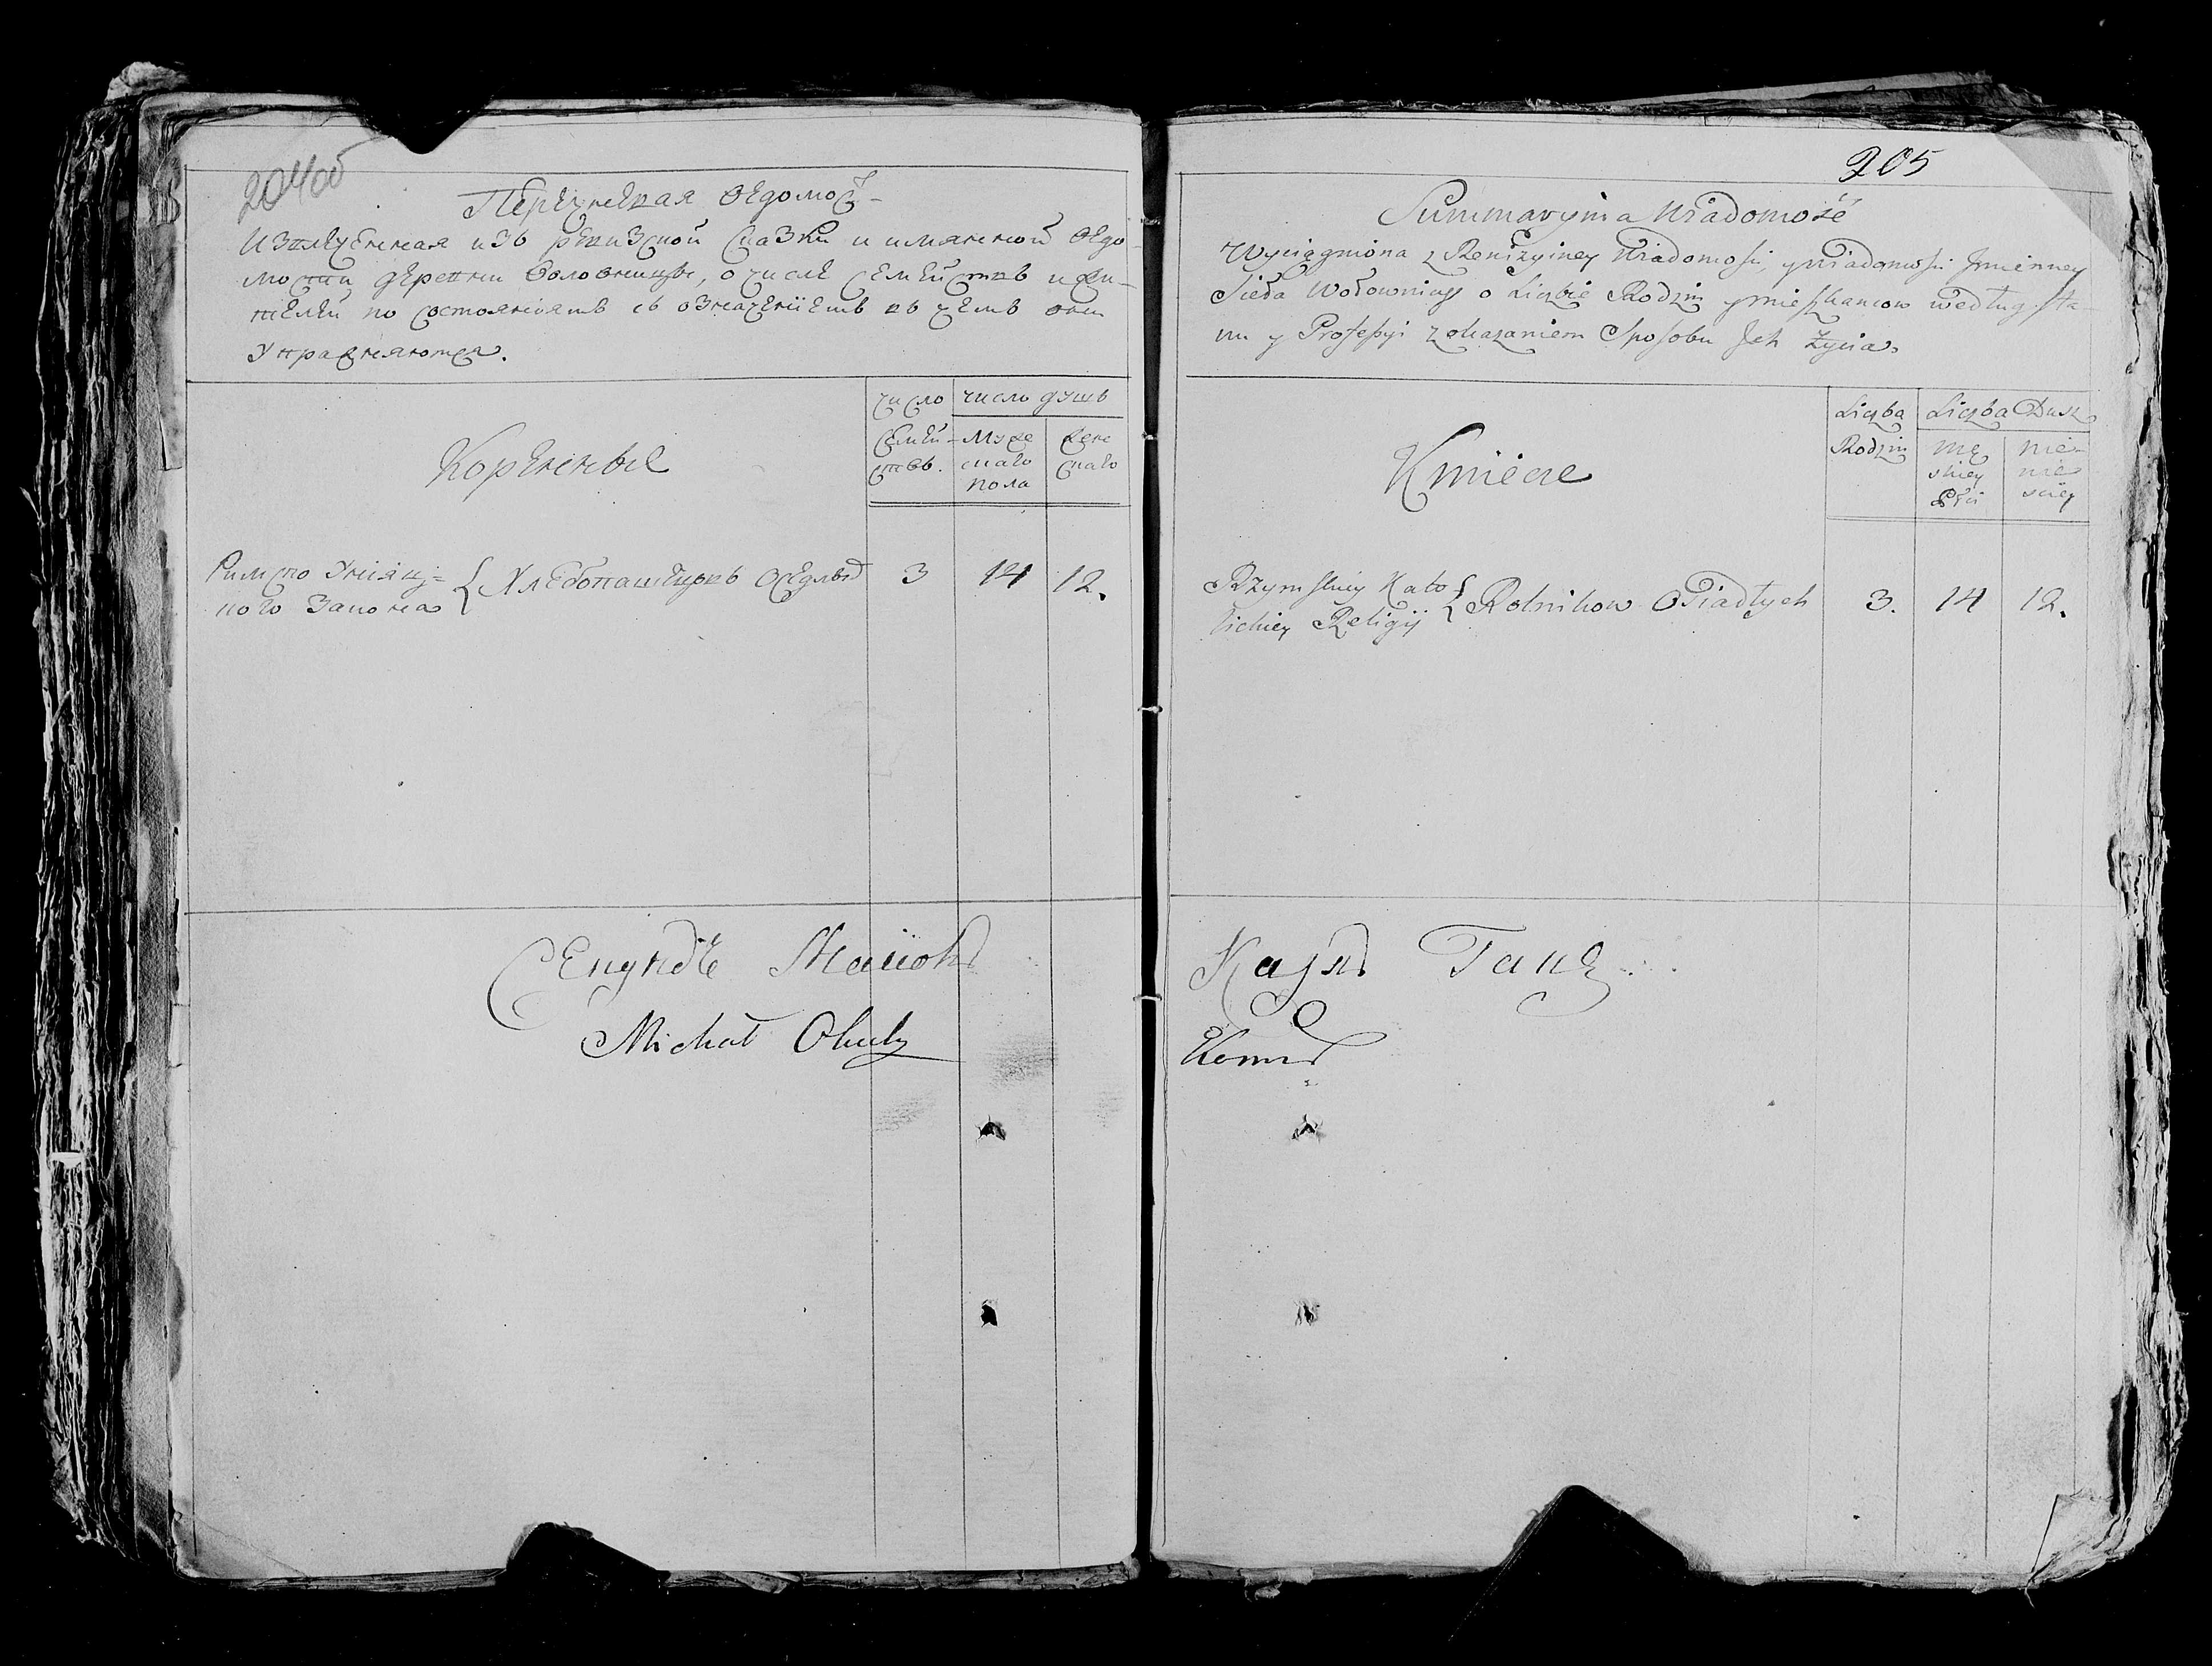 204об
Перечневая ведомость
Извлеченная изъ ревизской сказки и имянной ведо-
мости деревни Воловницы, о числе семействъ и жи-
телей по состояніямъ съ означеніемъ въ чемъ они
Упражняются.
число
семей-
ствъ.
число душъ
Муже
скаго
пола
жен
скаго
Коренные
Римско Уніятс=
кого Закона { Хлебопашцовъ Оседлыхъ 3 14 12.
Секундъ
Michał
205
Summaryina Wiadomość
Wyciągniona z Rewizyiney Wiadomości, y Wiadomości Jmienney
Sieła Wołownicy o Liczbie Rodzin y mieszkancow według sta-
nu y Profeſsyi z okazaniem Sposobu Jch Życia.
Liczba
Rodzin
Liczba Dusz
Mę
skiey
Płci
nie
wie
sciey
Kmiecie
Rzymskiey Kato
lickiey Religij { Rolnikow Osiadłych 3. 14 12.